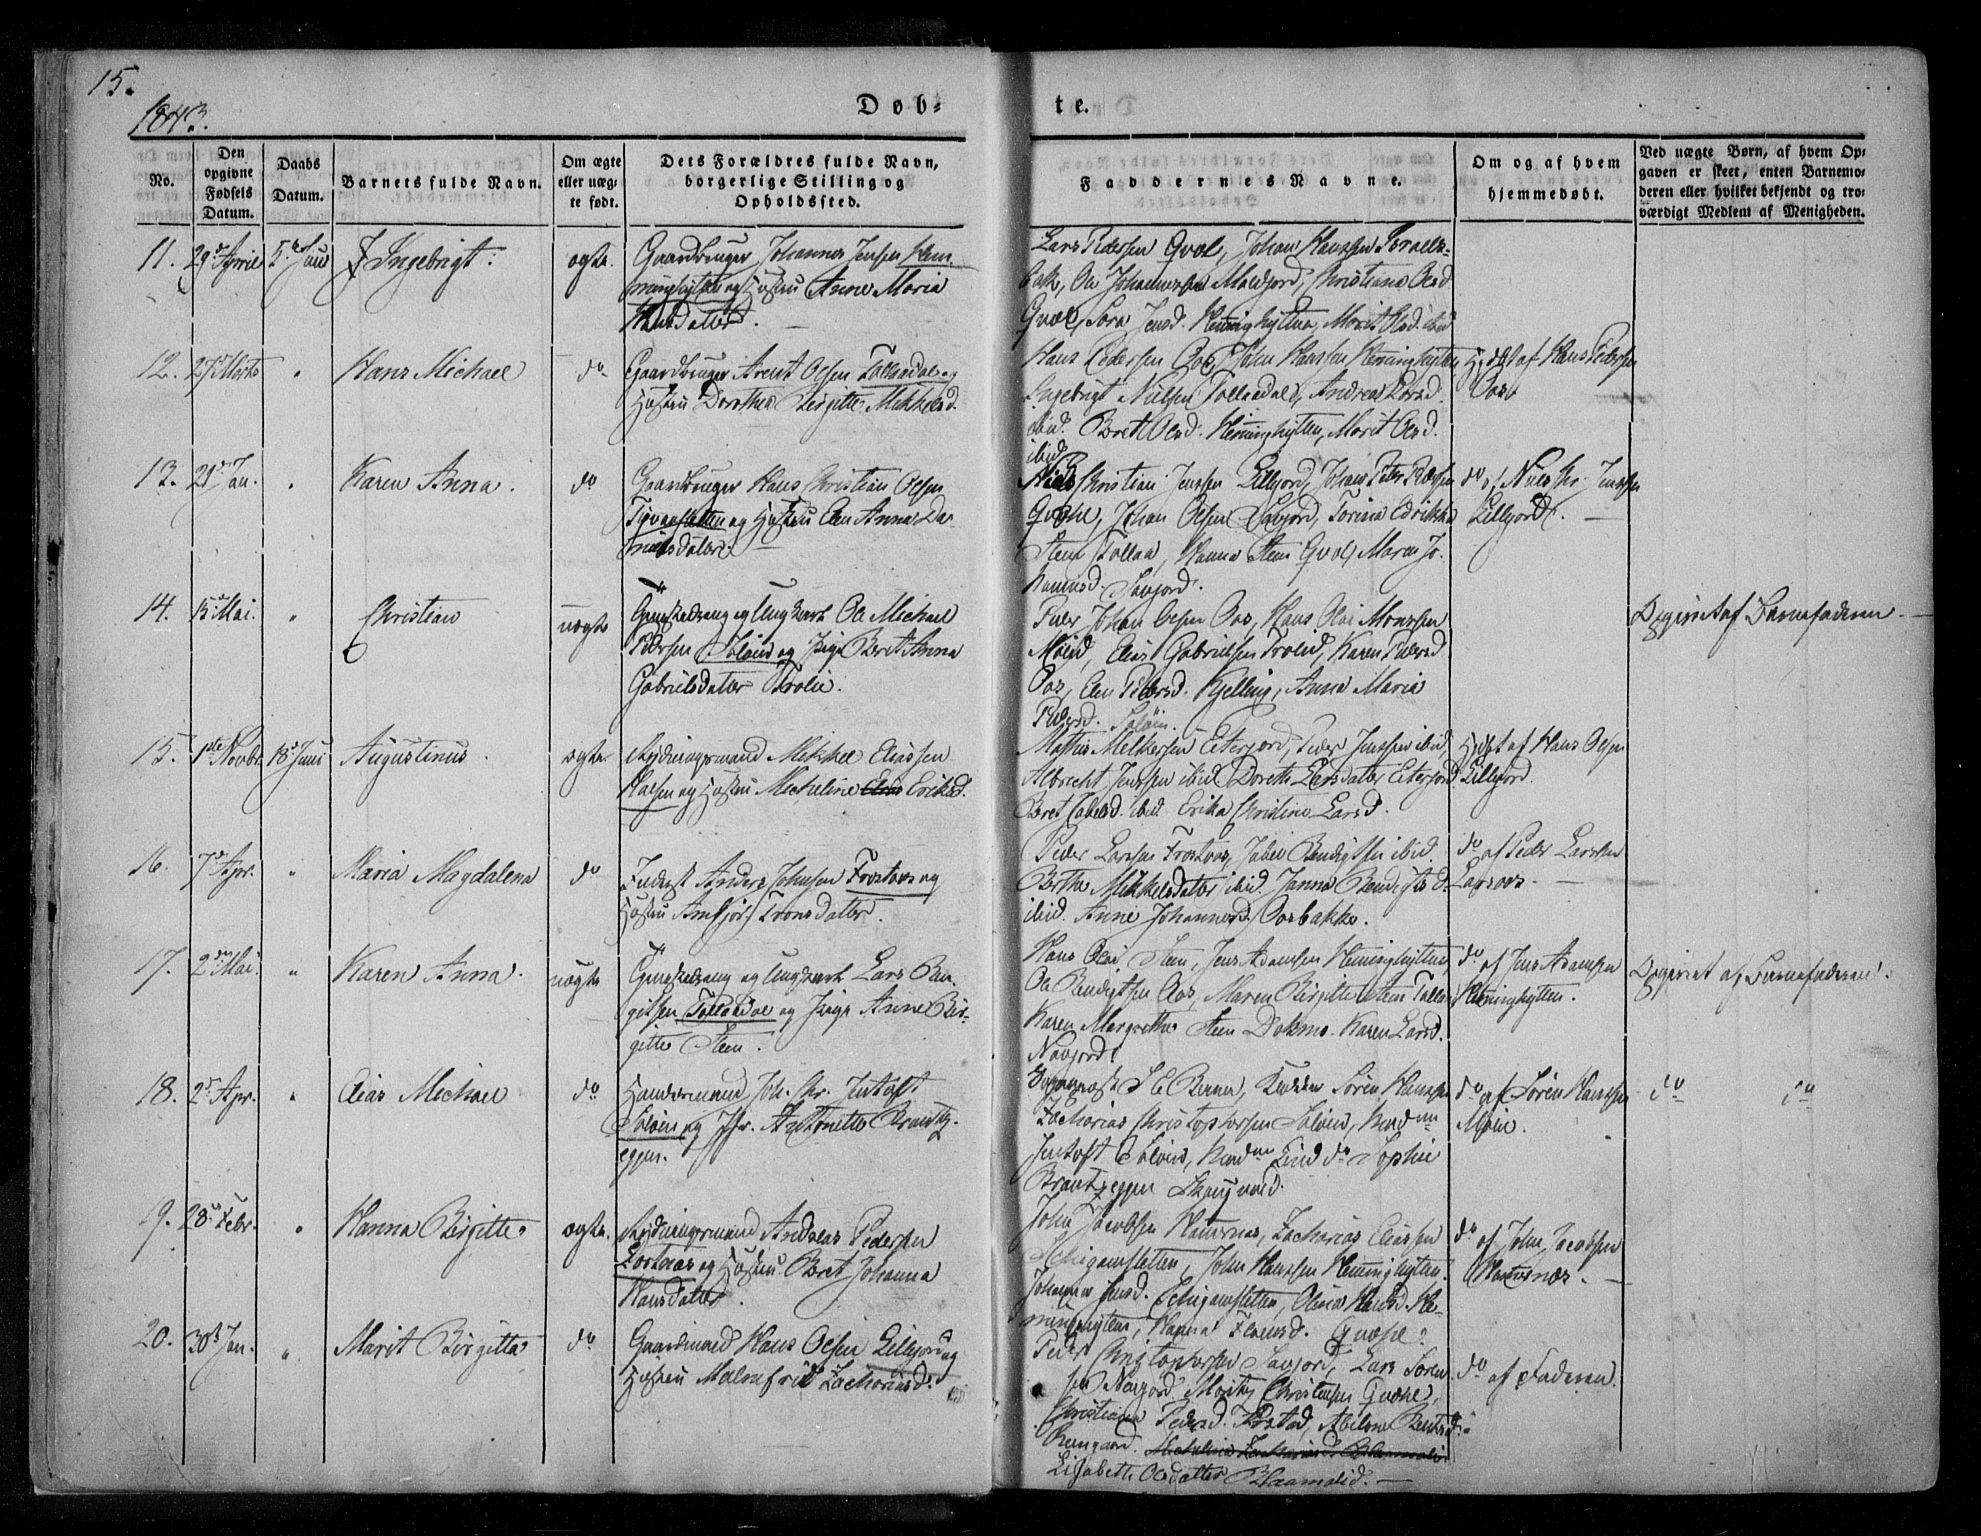 15.
1843.
Døb-
te.
No.
Den opgivne Fødsels Datum.
Daabs Datum.
Barnets fulde Navn.
Om ægte eller uæg-te født.
Dets Forældres fulde Navn, borgerlige Stilling og Opholdssted.
Faddernes Navne.
Om og af hvem hjemmedøbt.
Ved uægte Børn, af hvem Op-gaven er skeet, enten Barnemo-deren eller hvilket bekjendt og tro-værdigt Medlem af Menigheden.
11. 29de April 5te Juni Ingebrigt. ægte.
Gaardbruger Johannes Jensen Hem-
ninghytten og Hustru Anne Maria
Hansdatter.
Lars Pedersen Qvæl, Johan Hanssen Israels-
bak, Ole Johannessen Maefjord, Christiana Olsd
Qvæl, Sara Jensd. Heminghytten, Marit Olsd. ibid
12. 27de Marts " Hans Michael do
Gaardbruger Arent Olsen Tollaadal og
Hustru Dorothea Birgitte Mikkelsd.
Hans Pedersen Oos, John Hanssen Heminghytten
Ingebrigt Nielsen Tollaadal, Andrea Larsd.
ibid. Beret Olsd. Heminghytten, Marit Olsd.
ibid
Hjdøbt af Hans Pedersen
Oos
13. 21de Jan. " Karen Anna. do
Gaardbruger Hans Christian Olsen
og Hustru Elen Anna Da-
nielsdatter.
Niels Christian Jenssen Lillejord, Johan Peter Pedersen
Qvæle, Johan Olsen Savjord,
Steen Tollaa, Hanna Steen Qvæl, Maren Jo-
hannsd. Savjord.
do af Niels Chr. Jenssen
Lillejord.
14. 15de Mai. " Christian uægte
og Ungkarl Ole Michael
Pedersen Soløien og Pige Beret Anna
Gabrielsdatter Trolie.
Peder Johan Olsen Oos, Hans Olai Monssen
Moeid, Elias Gabrielsen Trolid, Karen Pedersd
Oos, Elen Pedersd. Kjelling, Anna Maria
Pedersd. Soløien.
Opgivet af Barnefaderen
15. 1ste Novbr 18de Juni Augustinus. ægte
Rydningsmand Mikkel Eliassen
og Hustru Micheline Eriksd.
Mathis Melkersen Eiterjord, Peder Jenssen ibid,
Albrecht Jenssen ibid. Dorethe Larsdatter Eiterjord
Beret ibid. Erika Christine Larsd.
Hjdøbt af Hans Olsen
Lillejord.
16. 7de Apr. " Maria Magdalena do
Inderst Anders Johnsen og
Hustru Trondsdatter.
Peder Larssen Frostoos, Bendigtsen ibid.
Berthe Mikkelsdatter ibid. Janna Bendigtsd.
ibid. Anne Johannesd. Oosbakke.
do af Peder Larssen
17. 2den Mai. " Karen Anna. uægte
og Ungkarl Lars Ben-
gitsen Tollaadal og Pige Anne Bir-
gitte Steen.
Hans Olai Steen, Jens Adamsen Heminghytten,
Ole Bendigtsen Oos, Maren Birgitte Steen Tollaa
Karen Margrethe Steen Dokmo. Karen Larsd.
Navjord.
do af Jens Adamsen
Heminghytten.
Opgivet af Barnefaderen
18. 25 Apr. " Elias Michael do
Handelsmand Joh. Chr. Jentoft
Soløien og Jfr. Antonette Brantz-
eggen.
S. E. Benner, Søren Hanssen
Zacharias Christophersen Soløien, Madm
Jentoft Soløien, Madm Lind do Sophie
Brantzeggen
do af Søren Hanssen
Moeie.
do do
19. 28de Febr. " Hanna Birgitte ægte.
Rydningsmand Andreas Pedersen
og Hustru Beret Johanna
Hansdatter.
John Jacobsen Hamernæs, Zacharias Eliassen
John Hanssen Heminghytten.
Johanna Jensd. Olina Hansd. He-
minghytten, Hanna Qvæle.
do af John Jacobsen
Hamernæs.
20. 30te Jan. " Marit Birgitta do
Gaardmand Hans Olsen Lillejord og
Hustru Malenfrid Zachariasd.
Peder Christophersen Savjord, Lars Soren-
sen Navjord, Moritz Christensen Qvæle,
Christiana Pedersd. Abilone Bentsd.
Lisabeth Olsdatter Blaamolid.
do af Faderen.